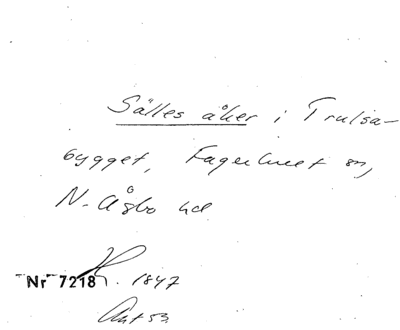 Sälles åker i Trulsa-
bygget, Fagerhult sn,
N. Åsbo hd
Nr 7218 K. 1847